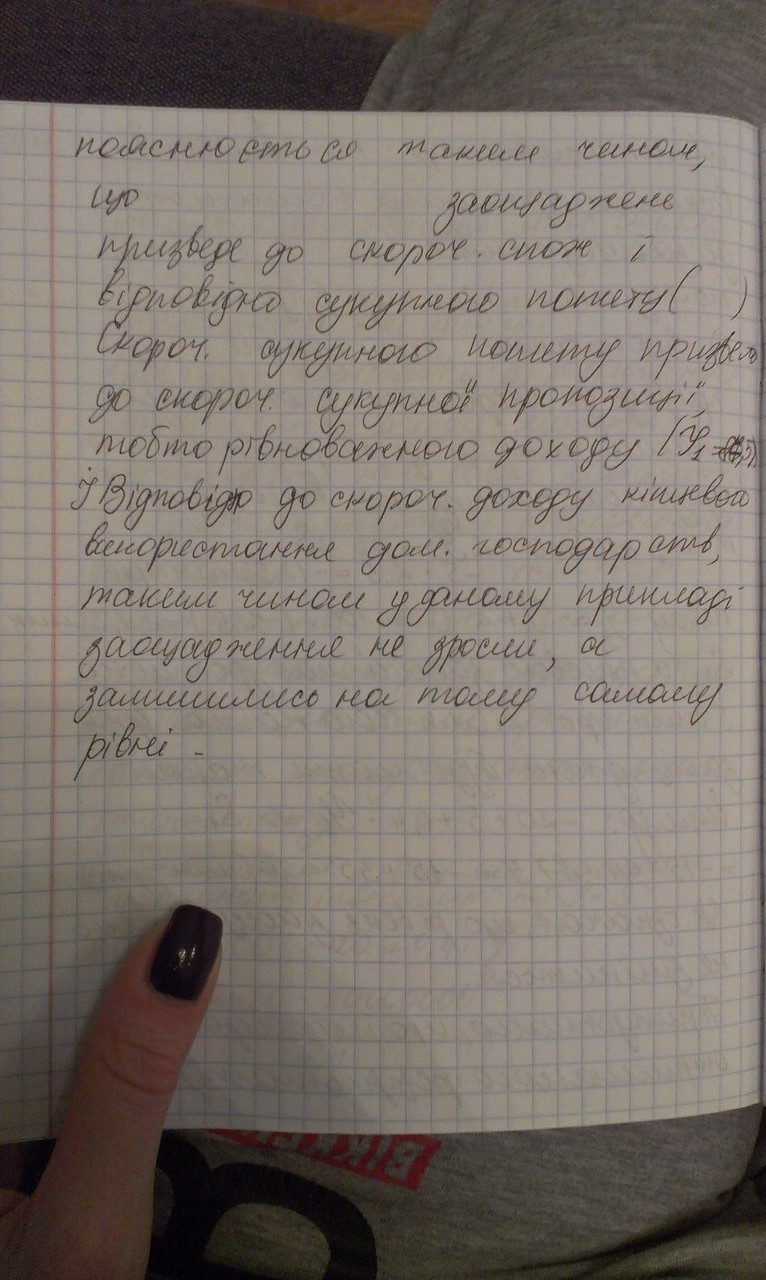 пояснюється таким чином,
що заощаджене
призведе до скороч. спож і
відповідно сукупного попиту ( )
Скороч. сукупного попиту призвело
до скороч. сукупної пропозиції,
тобто рівноважного доходу (Y₁ =
І Відповідно до скороч. доходу кінцевого
використання дом. господарств,
таким чином у даному прикладі
заощадження не зросли, а
залишились на тому самому
рівні -